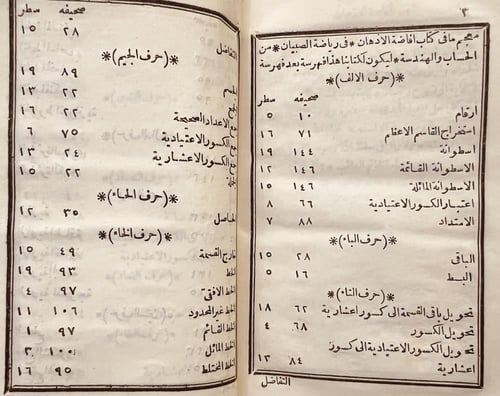 ٣
معجم مافى كتاب افاضة الاذهان * فى رياضة الصبيان * من
الحساب والهندسة * ليكون لكتابنا هذا فهرسة بعد فهرسة
*(حرف الالف)*
صحيفه سطر
ارقام ١٠ ٥
استخراج القاسم الاعظم ٧١ ١٦
اسطوانة ١٤٤ ١٩
الاسطوانة القائمة ١٤٦ ١٢
الاسطوانة المائلة ١٤٦ ١٥
اعتبار الكسور الاعتيادية ٦٦ ٨
الامتداد ٨٨ ٧
*(حرف الباء)*
الباقى ٢٨ ١٥
البسط ١٦ ٥
*(حرف التاء)*
تحويل باقى القسمة الى كسور اعشارية ٦٢ ١٨
تحويل الكسور ٦٨ ٤
تحويل الكسور الاعتيادية الى كسور
اعشارية ٨٤ ١٣
التفاضل
صحيفه سطر
التفاضل ٢٨ ١٥
*(حرف الجيم)*
الجسم ٨٩ ١٩
٢٢ ١٣
الاعداد الصحيحة ٢٢ ١٦
الكسور الاعتيادية ٧٥ ٦
الكسور الاعشارية ٢٤ ١٣
٢٢ ١٥
*(حرف الحاء)*
الحاصل ٣٥ ١٢
*(حرف الخاء)*
خارج القسمة ٤٩ ١٥
الخط ٩٣ ١٩
الخط الافقى ٩٧ ٤
الخط غير المحدود ١٠٦ ١١
الخط القائم ٩٧ ١
الخط المائل ١٠٠ ٢
الخط المختلط ٩٥ ١٦